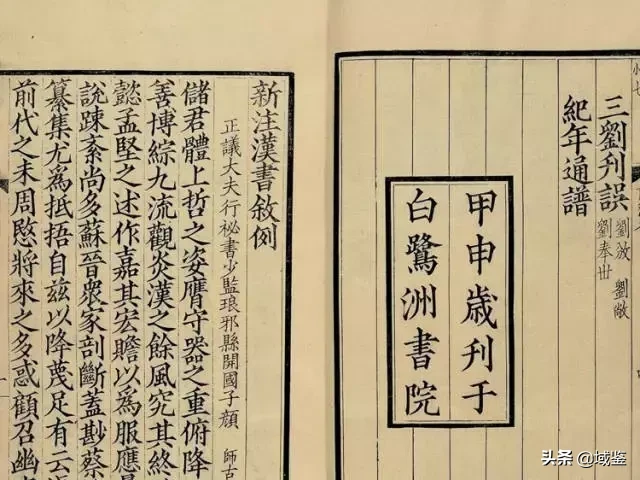 三劉刊誤 劉攽 劉敞 劉奉丗
紀年通譜
甲申歲刊于
白鷺洲書院
新注漢書敘例
正議大夫行祕書少監琅邪縣開國子顏 師古
儲君體上哲之姿膺守器之重俯降
善博綜九流觀炎漢之餘風究其終
懿孟堅之述作嘉其宏贍以爲服應
說踈紊尚多蘇晉眾家剖斷蓋尠蔡
纂集尤爲抵捂自茲以降蔑足有云
前代之未周愍將來之多惑顧召幽
头条 @域鉴